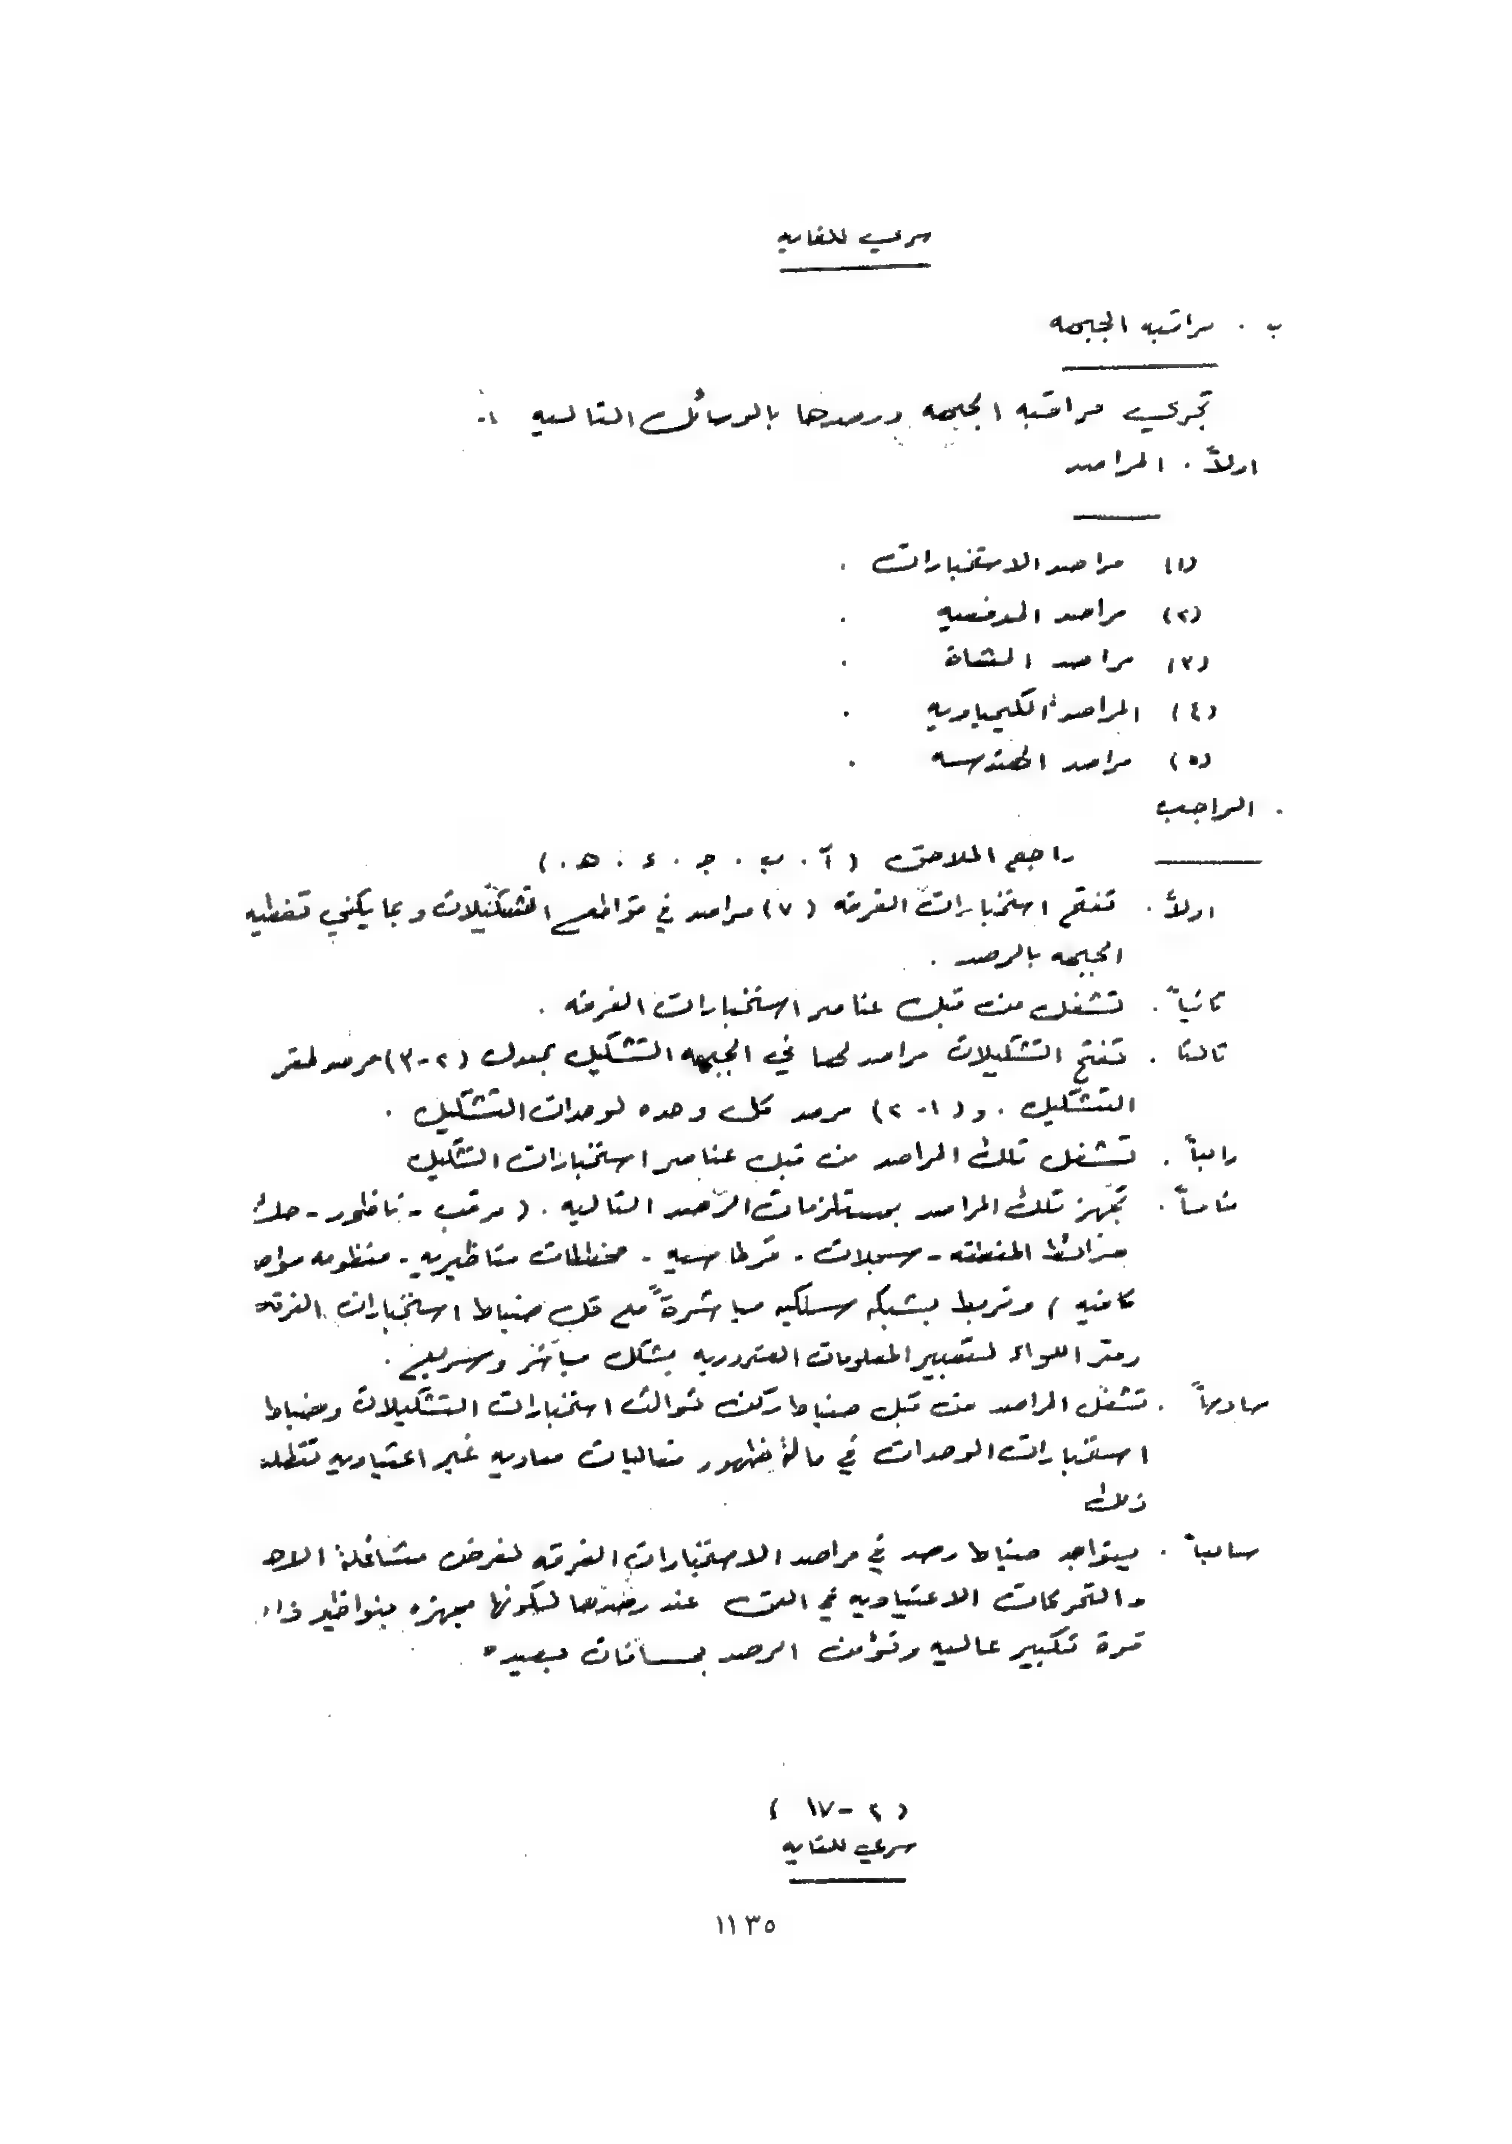 سري للغايه
ب . مراقبه الجبهه
تجري مراقبه الجبهه ورصدها بالوسائل التاليه :-
اولاً . المراصد
(١) مراصد الاستخبارات .
(٢) مراصد المدفعيه .
(٣) مراصد المشاة .
(٤) المراصد الكيمياويه .
(٥) مراصد الهندسه .
. الواجب
راجع الملاحق ( آ . ب . جـ . ء . هـ . )
اولاً . تفتح استخبارات الفرقه (٧) مراصد في قواطع التشكيلات وبما يكفي تغطيه
الجبهه بالرصد .
ثانياً . تشغل من قبل عناصر استخبارات الفرقه .
ثالثا . تفتح التشكيلات مراصد لها في الجبهه التشكيل بمعدل (٢-٣) مرصد لمقر
التشكيل . و (١-٢) مرصد كل وحده لوحدات التشكيل .
رابعاً . تشغل تلك المراصد من قبل عناصر استخبارات التشكيل
خامساً . تجهز تلك المراصد بمستلزمات الرصد التاليه . ( مرقب - ناظور - حك
خرائط المنطقه - سجلات - قرطاسيه - مخططات مناظيريه - منظومه مواص
كافيه ) وتربط بشبكه سلكيه مباشرةً مع قلم ضباط استخبارات الفرقه
ومقر اللواء لتمرير المعلومات الضروريه بشكل مباشر وسريع .
سادساً . تشغل المراصد من قبل ضباط ركن ثوالث استخبارات التشكيلات وضباط
استخبارات الوحدات في حالة ظهور فعاليات معاديه غير اعتياديه تتطلب
ذلك
سابعاً . يتواجد ضباط رصد في مراصد الاستخبارات الفرقه لغرض مشاغلة الاهـ
والتحركات الاعتياديه في العمق عند رصدها لكونها مجهزه بنواظير ذات
قوة تكبير عاليه وتؤمن الرصد بمسافات بعيده
( ٢ - ١٧ )
سري للغايه
١١٣٥